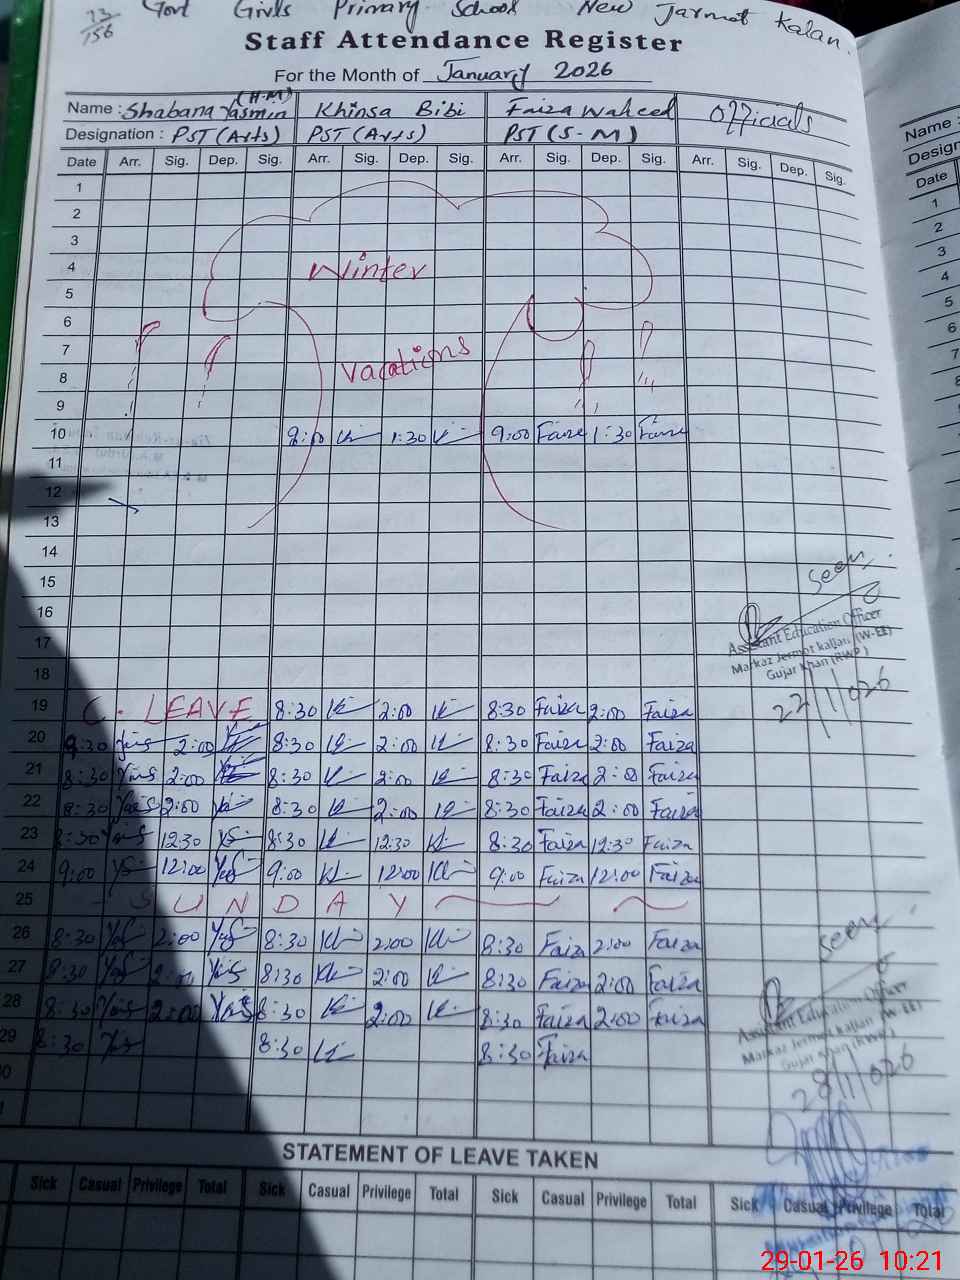 73/156 Govt Girls Primary School New Jarmot Kalan.
Staff Attendance Register
For the Month of January 2026
Name : Shabana Yasmin (H.M) Khinsa Bibi Faiza Waheed Officials
Designation : PST (Arts) PST (Arts) PST (S-M)
Date Arr. Sig. Dep. Sig. Arr. Sig. Dep. Sig. Arr. Sig. Dep. Sig. Arr. Sig. Dep. Sig.
1
2
3
4 Winter
5
6
7 Vacations
8
9
10 9:00 1:30 9:00 Faiza 1:30 Faiza
11
12
13
14
15 Seen
16
17 Assistant Education Officer
Markaz Jermot kallan (W-EE)
18 Gujar Khan (RWP)
22/1/026
19 C. LEAVE 8:30 2:00 8:30 Faiza 2:00 Faiza
20 8:30 2:00 8:30 2:00 8:30 Faiza 2:00 Faiza
21 8:30 Yas 2:00 8:30 2:00 8:30 Faiza 2:00 Faiza
22 8:30 Yas 2:00 8:30 2:00 8:30 Faiza 2:00 Faiza
23 8:30 Yas 12:30 8:30 12:30 8:30 Faiza 12:30 Faiza
24 9:00 12:00 9:00 12:00 9:00 Faiza 12:00 Faiza
25 SUNDAY
26 8:30 2:00 8:30 2:00 8:30 Faiza 2:00 Faiza
Seen
27 8:30 2:00 8:30 2:00 8:30 Faiza 2:00 Faiza
28 8:30 Yas 2:00 Yas 8:30 2:00 8:30 Faiza 2:00 Faiza
Assistant Education Officer
Markaz Jermot kallan (W-EE)
Gujar Khan (RWP)
29 8:30 8:30 8:30 Faiza
28/1/026
STATEMENT OF LEAVE TAKEN
Sick Casual Privilege Total Sick Casual Privilege Total Sick Casual Privilege Total Sick Casual Privilege Total
29-01-26 10:21